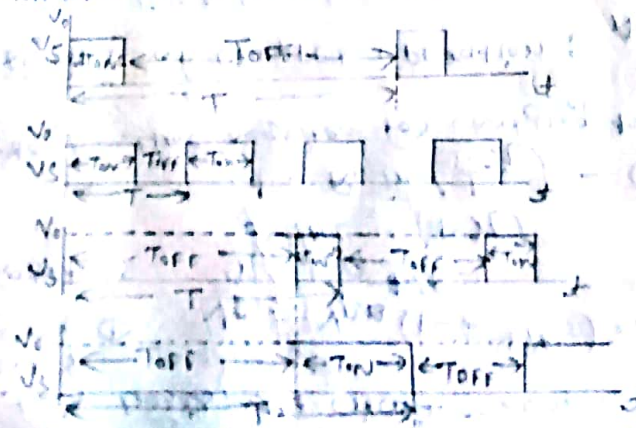 Vo
Vs TON TOFF
T t
Vo
Vs TON TOFF TON
T t
Vo
TOFF TON TOFF TON
Vs
T t
Vo
TOFF TON TOFF
Vs
T